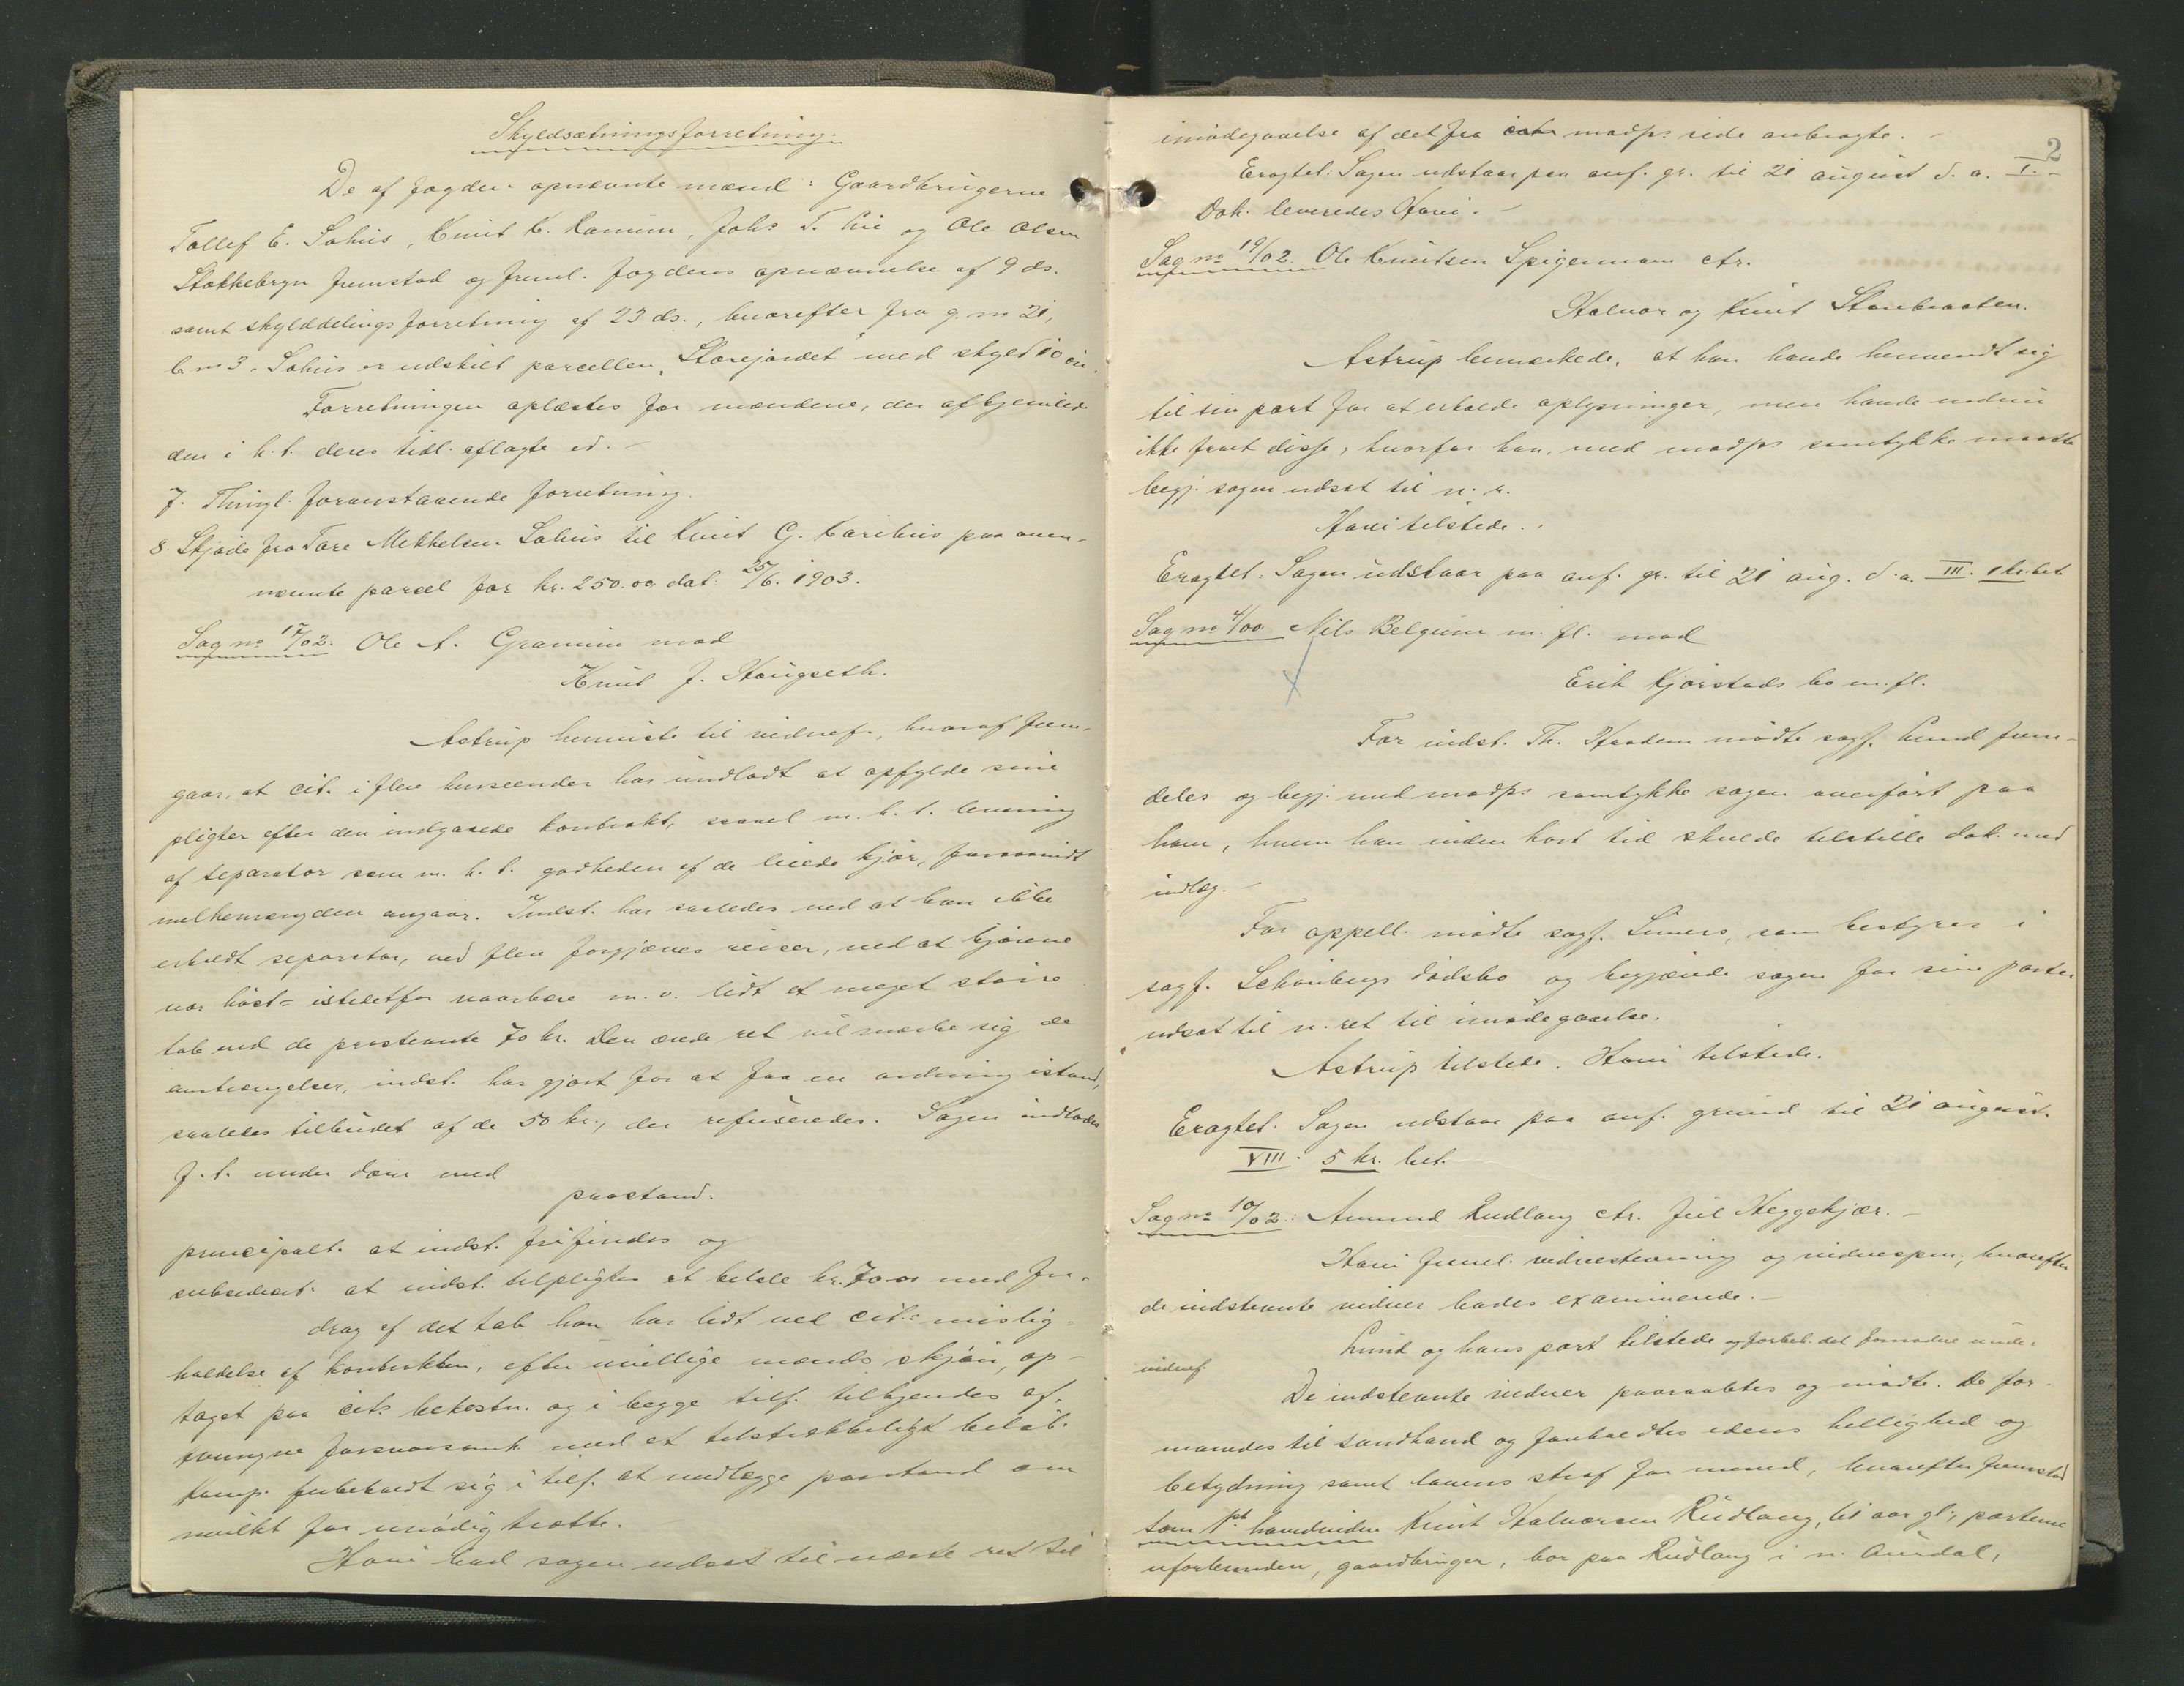 Skyldsætningsforretning.
De af fogden opnævnte mænd: Gaardbrugerne
Tollef E. Sahus, Knut K. Ramun, Johs T. Lie og Ole Olsen
Stokkebryn fremstod og freml. fogdens opnævnelse af 9 ds.
samt skylddelingsforretning af 23 ds., hvorefter fra g. no 21,
b. no 3. Sahus er udskilt parcellen "Storejordet" med skyld 10 øre.
Forretningen oplæstes for mændene, der afhjemlede
den i h. t. deres tidl. aflagte ed. –
7. Thingl. foranstaaende forretning.
8. Skjøde fra Tore Mikkelsen Sahus til Knut G. Karihus paa oven-
nævnte parcel for kr. 250.00 dat. 25/6. 1903.
Sag no 17/02. Ole A. Gramim mod
Knut J. Haugseth.
Astrup henviste til vidnef., hvoraf frem-
gaar, at cit. i flere henseender har undladt at opfylde sine
pligter efter den indgaaede kontrakt, saavel m. h. t. levering
af separator som m. h. t. godheden af de leiede kjør, forsaavidt
melkemængden angaar. Indst. har saaledes ved at han ikke
erholdt separator, ved flere forgjæves reiser, ved at kjørene
var høst- istedetfor vaarbære m. v. lidt et meget større
tab end de paastevnte 70 kr. Den ærede ret vil mærke sig de
anstrængelser, indst. har gjort for at faa en ordning istand,
saaledes tilbudet af de 50 kr., der refuseredes. Sagen indlodes
f. t. under dom med
paastand.
principalt: at indst. frifindes og
subsidiært: at indst. tilpligtes at betale kr. 70.00 med fra-
drag af det tab han har lidt ved cit.s mislig-
holdelse af kontrakten, efter uvillige mænds skjøn, op-
taget paa cit.s bekostn. og i begge tilf. tilkjendes af
tvungne sagsomk. med et tilstrækkeligt beløb.
Komp. forbeholdt sig i tilf. at nedlægge paastand om
mulkt for unødig trætte.
Hovi bad sagen udsat til næste ret til
2
imødegaaelse af det fra modp.s side anbragte. –
Eragtet: Sagen udstaar paa anf. gr. til 21 august d. a. I. –
Dok. leveredes Hovi. –
Sag no 19/02. Ole Knutsen Spigerman ctr.
Halvor og Knut Storebraaten.
Astrup bemærkede, at han havde henvendt sig
til sin part for at erholde oplysninger, men havde endnu
ikke faaet disse, hvorfor han, med modp.s samtykke maatte
begj. sagen udsat til n. r.
Hovi tilstede.
Eragtet: Sagen udstaar paa anf. gr. til 21 aug. d. a. III. 1 kr. bet.
Sag no 4/00 Nils Belgum m. fl. mod
Erik Kjørstads bo m. fl.
For indst. Th. Haatem mødte sagf. Lund frem-
deles og begj. med modp.s samtykke sagen overført paa
ham, hvem han inden kort tid skulde tilstille dok. med
indlæg. –
For appell. mødte sagf. Simers, som bestyrer i
sagf. Schønbergs dødsbo og begjærede sagen for sine parter
udsat til n. ret til imødegaaelse.
Astrup tilstede. Hovi tilstede.
Eragtet: Sagen udstaar paa anf. grund til 21 august.
VIII. 5 kr. bet.
Sag no 10/02: Amund Rudlang ctr. Juul Heggekjær. –
Hovi freml. vidnestevning og vidnespm., hvorefter
de indstevnte vidner bades examinerede. –
Lund og hans part tilstede og forbeh. det fornødne under
vidnef.
De indstevnte vidner paaraabtes og mødte. De for-
manedes til sandhed og foreholdtes edens hellighed og
betydning samt lovens straf for mened, hvorefter fremstod
som 1ste hovedvidne Knut Halvorsen Rudlang, 61 aar gl., parterne
uforbunden, gaardbruger, bor paa Rudlang i n. Aurdal,